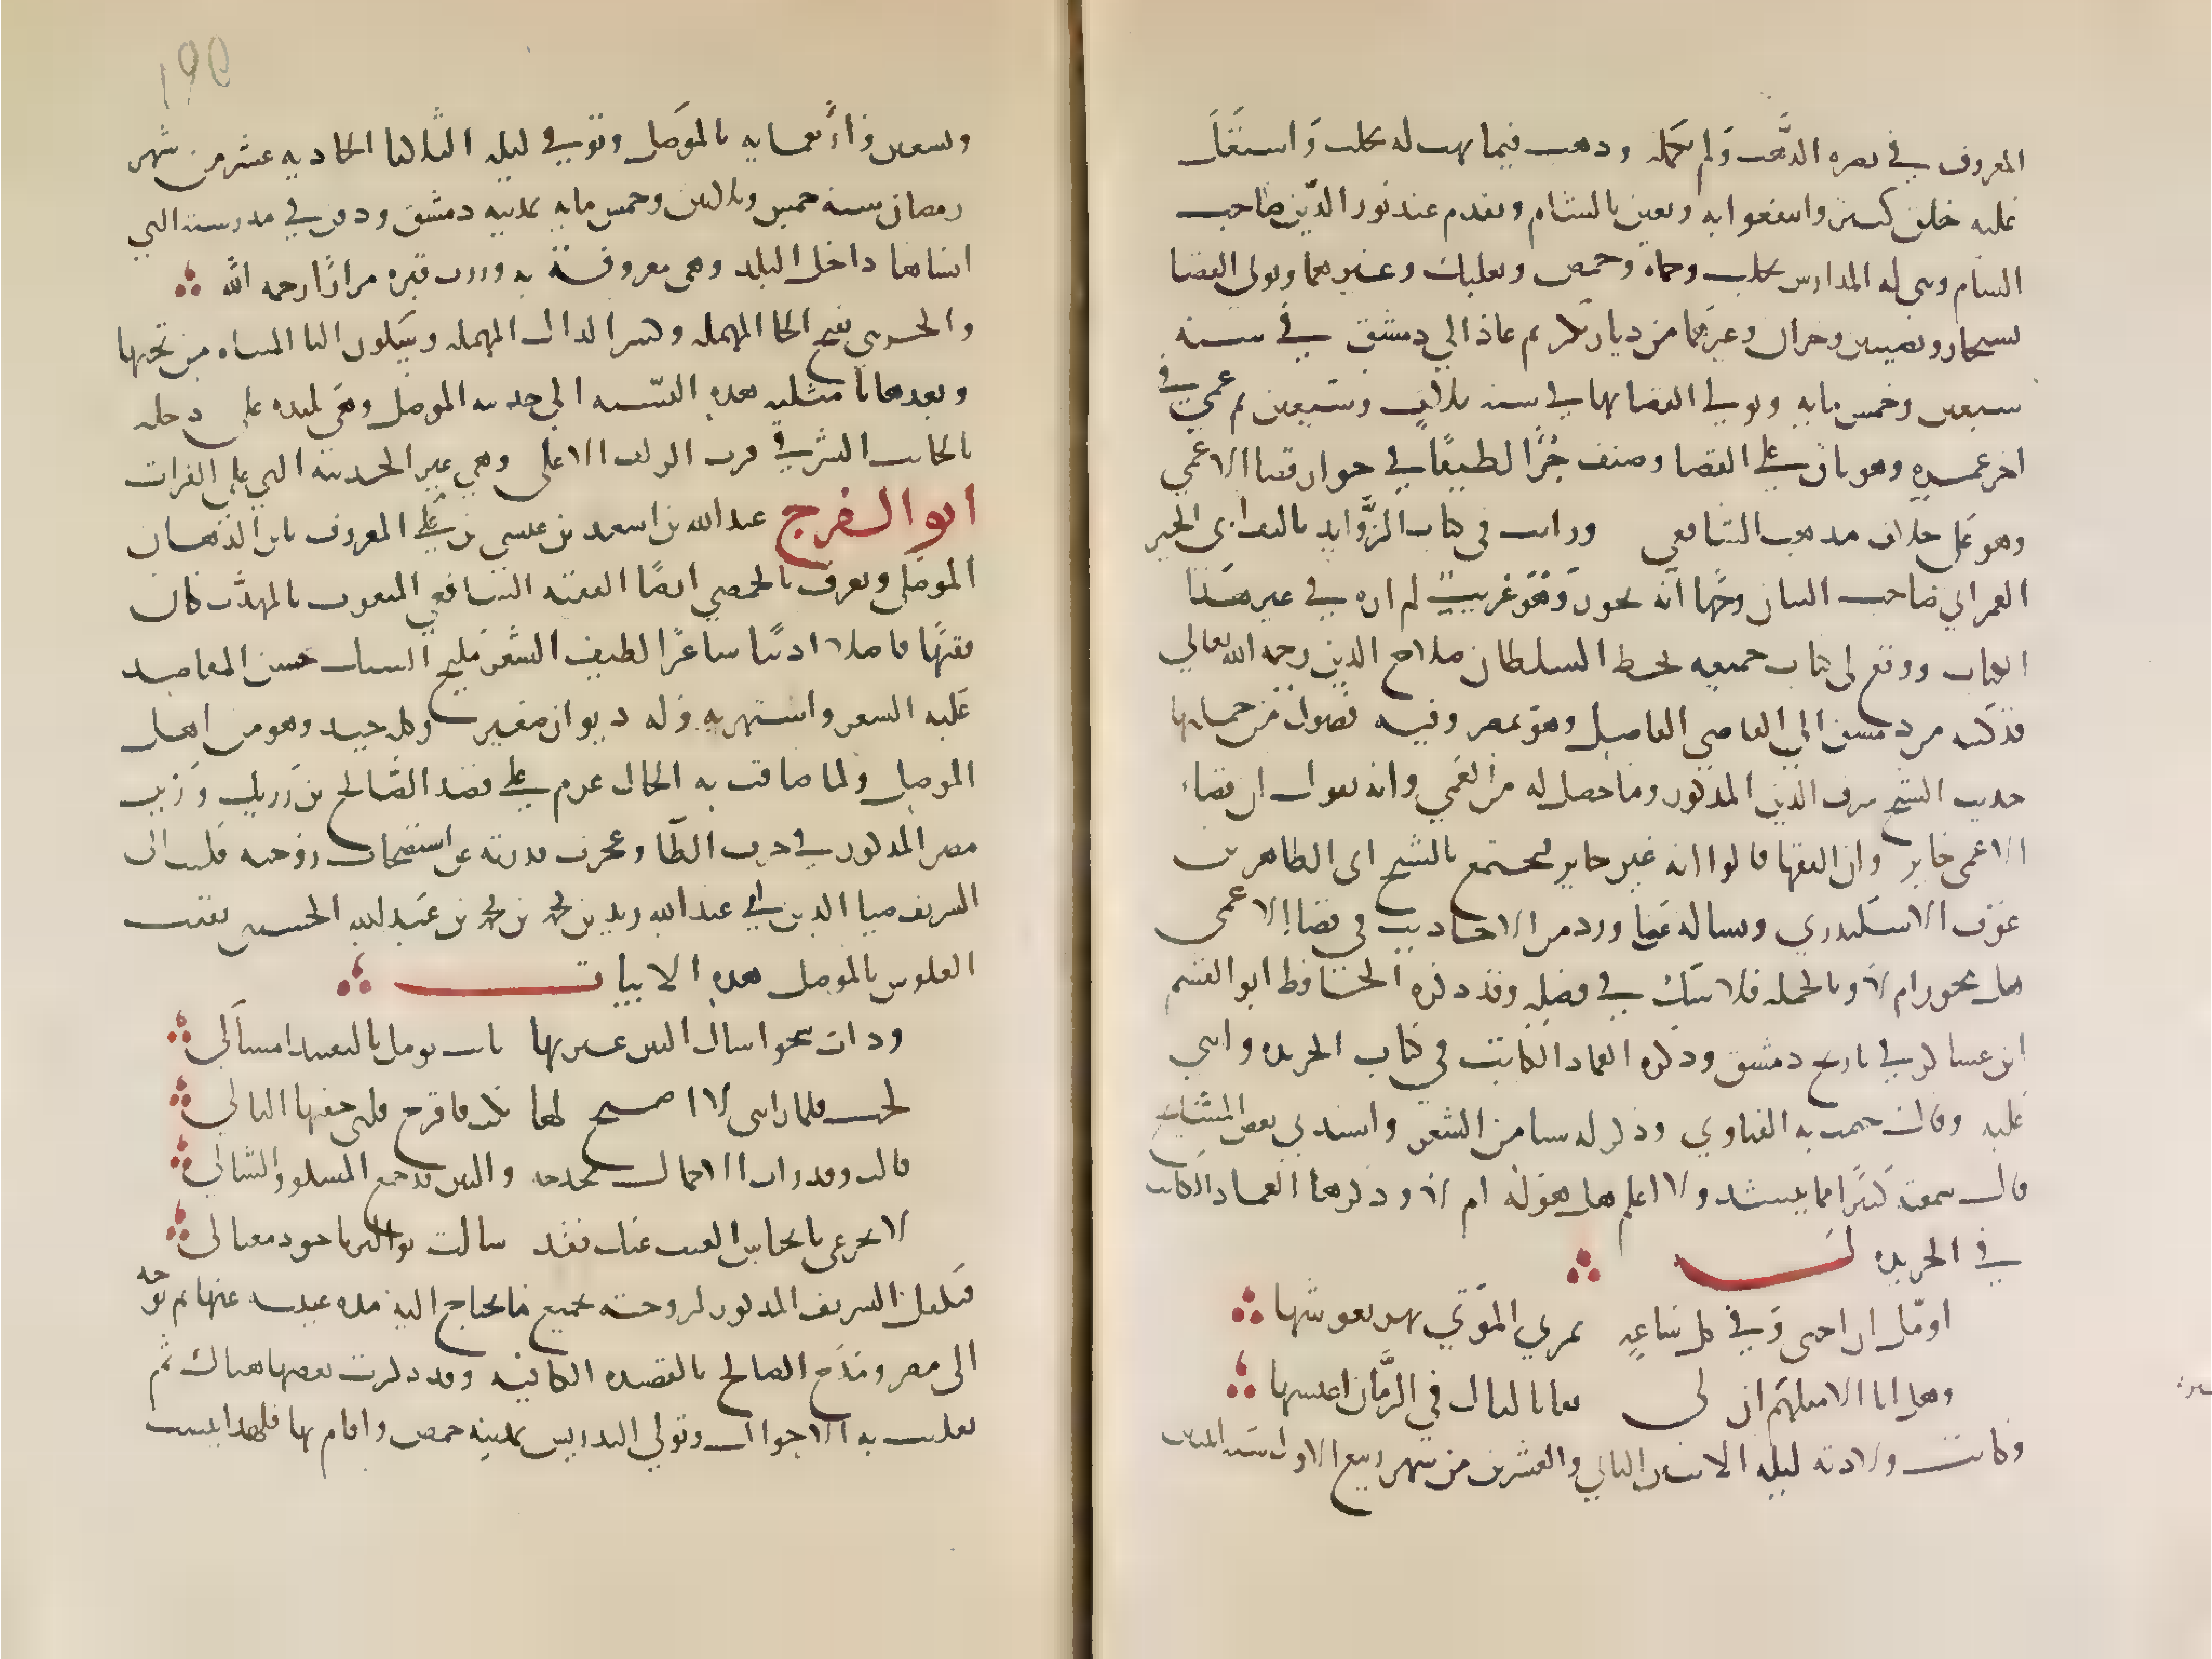 المعروف في نصره المذهب ولم يكمله وذهب فيما نهب له بحلب واشتغل
عليه خلق كثير وانتفعوا به وتعين بالشام وتقدم عند نور الدين صاحب
الشام وبنى له المدارس بحلب وحماة وحمص وبعلبك وغيرهما وتولى القضا
بسنجار ونصيبين وحران وغيرهما من ديار بكر ثم عاد الى دمشق في سنه
سبعين وخمس مايه وتولى القضا بها في سنه ثلاث وسبعين ثم عمي في
اخر عمره وهو باق على القضا وصنف جزا لطيفا في جواز قضا الاعمى
وهو على خلاف مذهب الشافعي ورايت في كتاب الزوايد تاليف ابي الخير
العمراني صاحب البيان وجها انه يجوز وهو غريب لم اره في غير هذا
الكتاب ووقع لي كتاب جميعه بخط السلطان صلاح الدين رحمه الله تعالى
قد كتبه من دمشق الى القاضي الفاضل وهو بمصر وفيه فصول من جملتها
حديث الشيخ شرف الدين المذكور وما حصل له من العمى وانه يقول ان قضاء
الاعمى جايز وان الفقها قالوا انه غير جايز فتجتمع بالشيخ ابي الطاهر بن
عوف الاسكندري وتساله عما ورد من الاحاديث في قضا الاعمى
هل يجوز ام لا وبالجمله فلا شك في فضله وقد ذكره الحافظ ابو القسم
ابن عساكر في تاريخ دمشق وذكره العماد الكاتب في كتاب الخريده واثنى
عليه وقال ختمت به الفتاوي وذكر له شيا من الشعر وانشدني بعض المشايخ
قال سمعته كثيرا ما ينشد ولا اعلم هل هو له ام لا وذكرهما العماد الكاتب
في الخريده له
اومل ان احيى وفي كل ساعه تمر بي الموتى تهز نعوشها
وهل انا الا مثلهم ان لي بقايا ليال في الزمان اعيشها
وكانت ولادته ليله الاثنين الثاني والعشرين من شهر ربيع الاول سنه اثنين
١٩٥
وتسعين واربعمايه بالموصل وتوفي ليله الثلاثا الحاديه عشر من شهر
رمضان سنه خمس وثمانين وخمس مايه بمدينه دمشق ودفن في مدرسته التي
انشاها داخل البلد وهي معروفة به وزرت قبره مرارا رحمه الله
والحديثي بفتح الحا المهمله وكسر الدال المهمله وسكون اليا المثناه من تحتها
وبعدها ثا مثلثه هذه النسبه الى حديثه الموصل وهي بليده على دجله
بالجانب الشرقي قرب الزاب الاعلى وهي غير الحديثه التي على الفرات
ابو الفرج عبد الله بن اسعد بن عيسى بن علي المعروف بابن الدهان
الموصلي ويعرف بالحمصي ايضا الفقيه الشافعي المنعوت بالمهذب كان
فقيها فاضلا اديبا شاعرا لطيف الشعر مليح السبك حسن المقاصد غلب
عليه الشعر واشتهر به وله ديوان صغير وكله جيد وهو من اهل
الموصل ولما ضاقت به الحال عزم على قصد الصالح بن رزيك وزير
مصر المذكور في حرف الطا وعجزت قدرته عن استصحاب زوجته فكتب الى
الشريف ضيا الدين ابي عبد الله زيد بن محمد بن محمد بن عبيد الله الحسيني نقيب
العلويين بالموصل هذه الابيات
وذات شجو اسال البين عبرتها باتت تومل بالتفنيد امساكي
لجت فلما راتني لا اصيخ لها بكت فاقرح قلبي جفنها الباكي
قالت وقد رات الاجمال محدجه والبين قد جمع المشكو والشاكي
لا تجزعي بانحباس الغيث عنك فقد سالت نو الثريا جود مغناك
فتكفل الشريف المذكور لزوجته بجميع ما تحتاج اليه مده غيبته عنها ثم توجه
الى مصر ومدح الصالح بالقصيده الكافيه وقد ذكرت بعضها هناك ثم
تقلبت به الاحوال وتولى التدريس بمدينه حمص واقام بها فلهذا ينسب